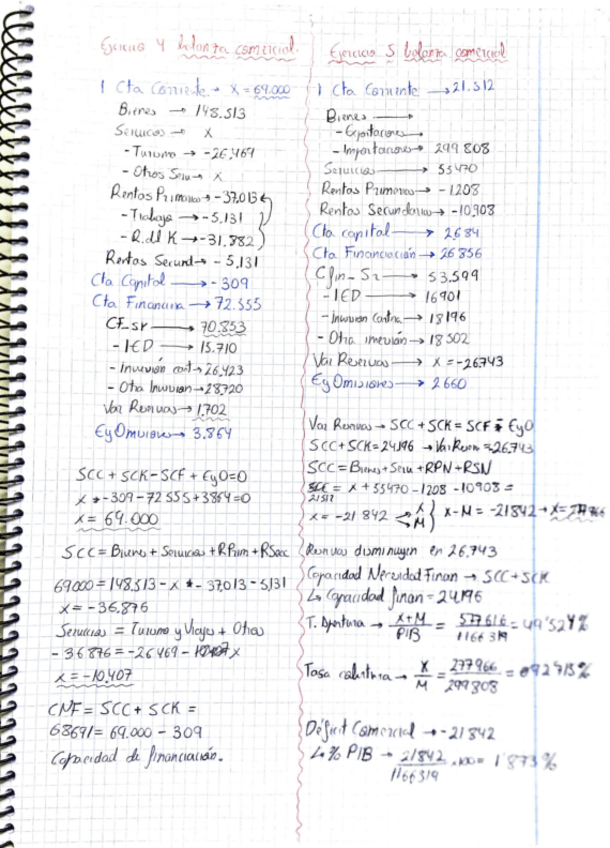 Ejercicio 4 balanza comercial.
1 Cta Corriente → x = 69.000
Bienes → 148.513
Servicios → x
- Turismo → -26.469
- Otros Serv → x
Rentas Primarias → -37.013
- Trabajo → -5.131
- R. del K → -31.882
Rentas Secund → -5.131
Cta Capital → -309
Cta Financiera → 72.555
CF_SR → 70.853
- IED → 15.710
- Inversión cart → 26.423
- Otra Inversion → 28.720
Var Reservas → 1.702
EyOmisiones → 3.864
SCC + SCK - SCF + EyO = 0
x + -309 - 72555 + 3864 = 0
x = 69.000
SCC = Bienes + Servicios + RPrim + RSecc
69000 = 148.513 - x + - 37.013 - 5.131
x = -36.876
Servicios = Turismo y Viajes + Otros
- 36876 = -26469 - x
x = -10.407
CNF = SCC + SCK =
68691 = 69.000 - 309
Capacidad de financiación.
Ejercicio 5 balanza comercial
1 Cta Corriente → 21.512
Bienes →
- Exportaciones →
- Importaciones → 299 808
Servicios → 55470
Rentas Primarias → -1208
Rentas Secundarias → -10.908
Cta capital → 2684
Cta Financiación → 26 856
Cfin_Sr → 53.599
- IED → 16901
- Inversion Cartera → 18196
- Otra inversión → 18502
Var Reservas → x = -26743
EyOmisiones → 2660
Var Reservas → SCC + SCK = SCF - EyO
SCC + SCK = 24.196 → Var Reserv = 26.743
SCC = Bienes + Serv + RPN + RSN
SCC = x + 55470 - 1208 - 10908 =
21512
x = -21 842 X M } X - M = -21842 → x = 277966
Reservas disminuyen en 26.743
Capacidad Necesidad Finan → SCC + SCK
↳ Capacidad finan = 24.196
T. Apertura → X+M / PIB = 577616 / 1166 319 = 49'524 %
Tasa cobertura → X / M = 277966 / 299808 = 092'715 %
Déficit Comercial → -21 842
↳ % PIB → 21842 / 1166319 · 100 = 1'873 %